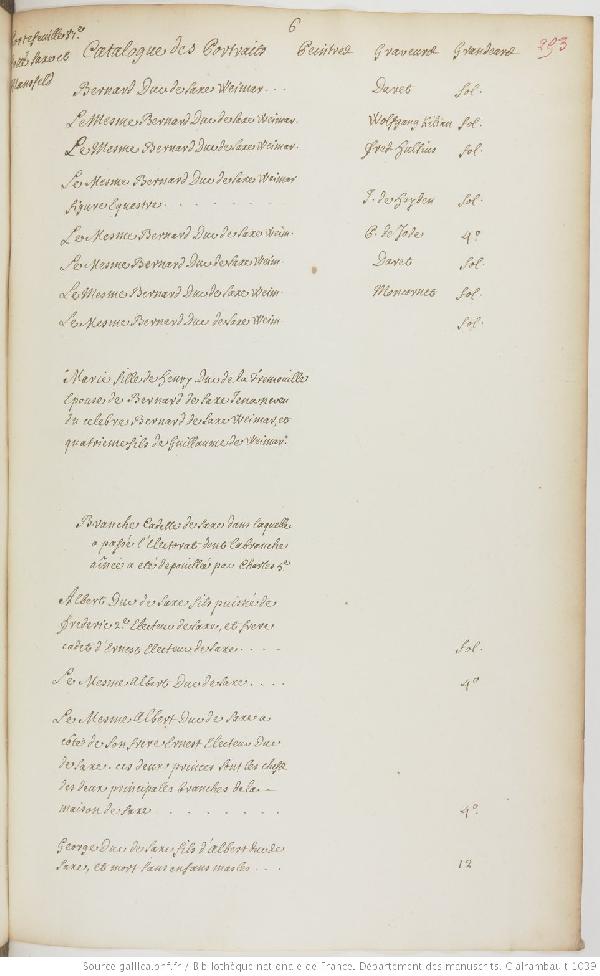 6
293
Portefeuille 11e.
Saxe et
Mansfeld
Catalogue des Portraits Peintres Graveurs Grandeurs
Bernard Duc de Saxe Weimar . . . Daret fol.
Le Mesme Bernard Duc de Saxe Weimar. Wolfgang Kilian fol.
Le Mesme Bernard Duc de Saxe Weimar. Fred. Hulsius fol.
Le Mesme Bernard Duc de Saxe Weimar
figure Equestre . . . . . . . . J. de Heyden fol.
Le Mesme Bernard Duc de Saxe Weim. P. de Jode 4º
Le Mesme Bernard Duc de Saxe Weim. Daret fol.
Le Mesme Bernard Duc de Saxe Weim. Moncornet fol.
Le Mesme Bernard Duc de Saxe Weim. fol.
Marie fille de Henry Duc de la Tremouille
Epouse de Bernard de Saxe Iena neveu
du celebre Bernard de Saxe Weimar, et
quatrieme fils de Guillaume de Weimar.
Branche Cadette de Saxe dans laquelle
a passé l'Electorat dont la branche
aînée a eté depouillée par Charles 5e
Albert Duc de Saxe fils puisné de
Frederic 2e. Electeur de Saxe, et frere
cadet d'Ernest Electeur de Saxe . . . . fol.
Le Mesme Albert Duc de Saxe . . . . 4º
Le Mesme Albert Duc de Saxe a
côté de son frere Ernest Electeur Duc
de Saxe. ces deux princes sont les chefs
des deux principales branches de la
maison de Saxe . . . . . . . . 4º.
George Duc de Saxe, fils d'Albert Duc de
Saxe, et mort sans enfans masles . . . 12
Source gallica.bnf.fr / Bibliothèque nationale de France. Département des manuscrits. Clairambault 1039